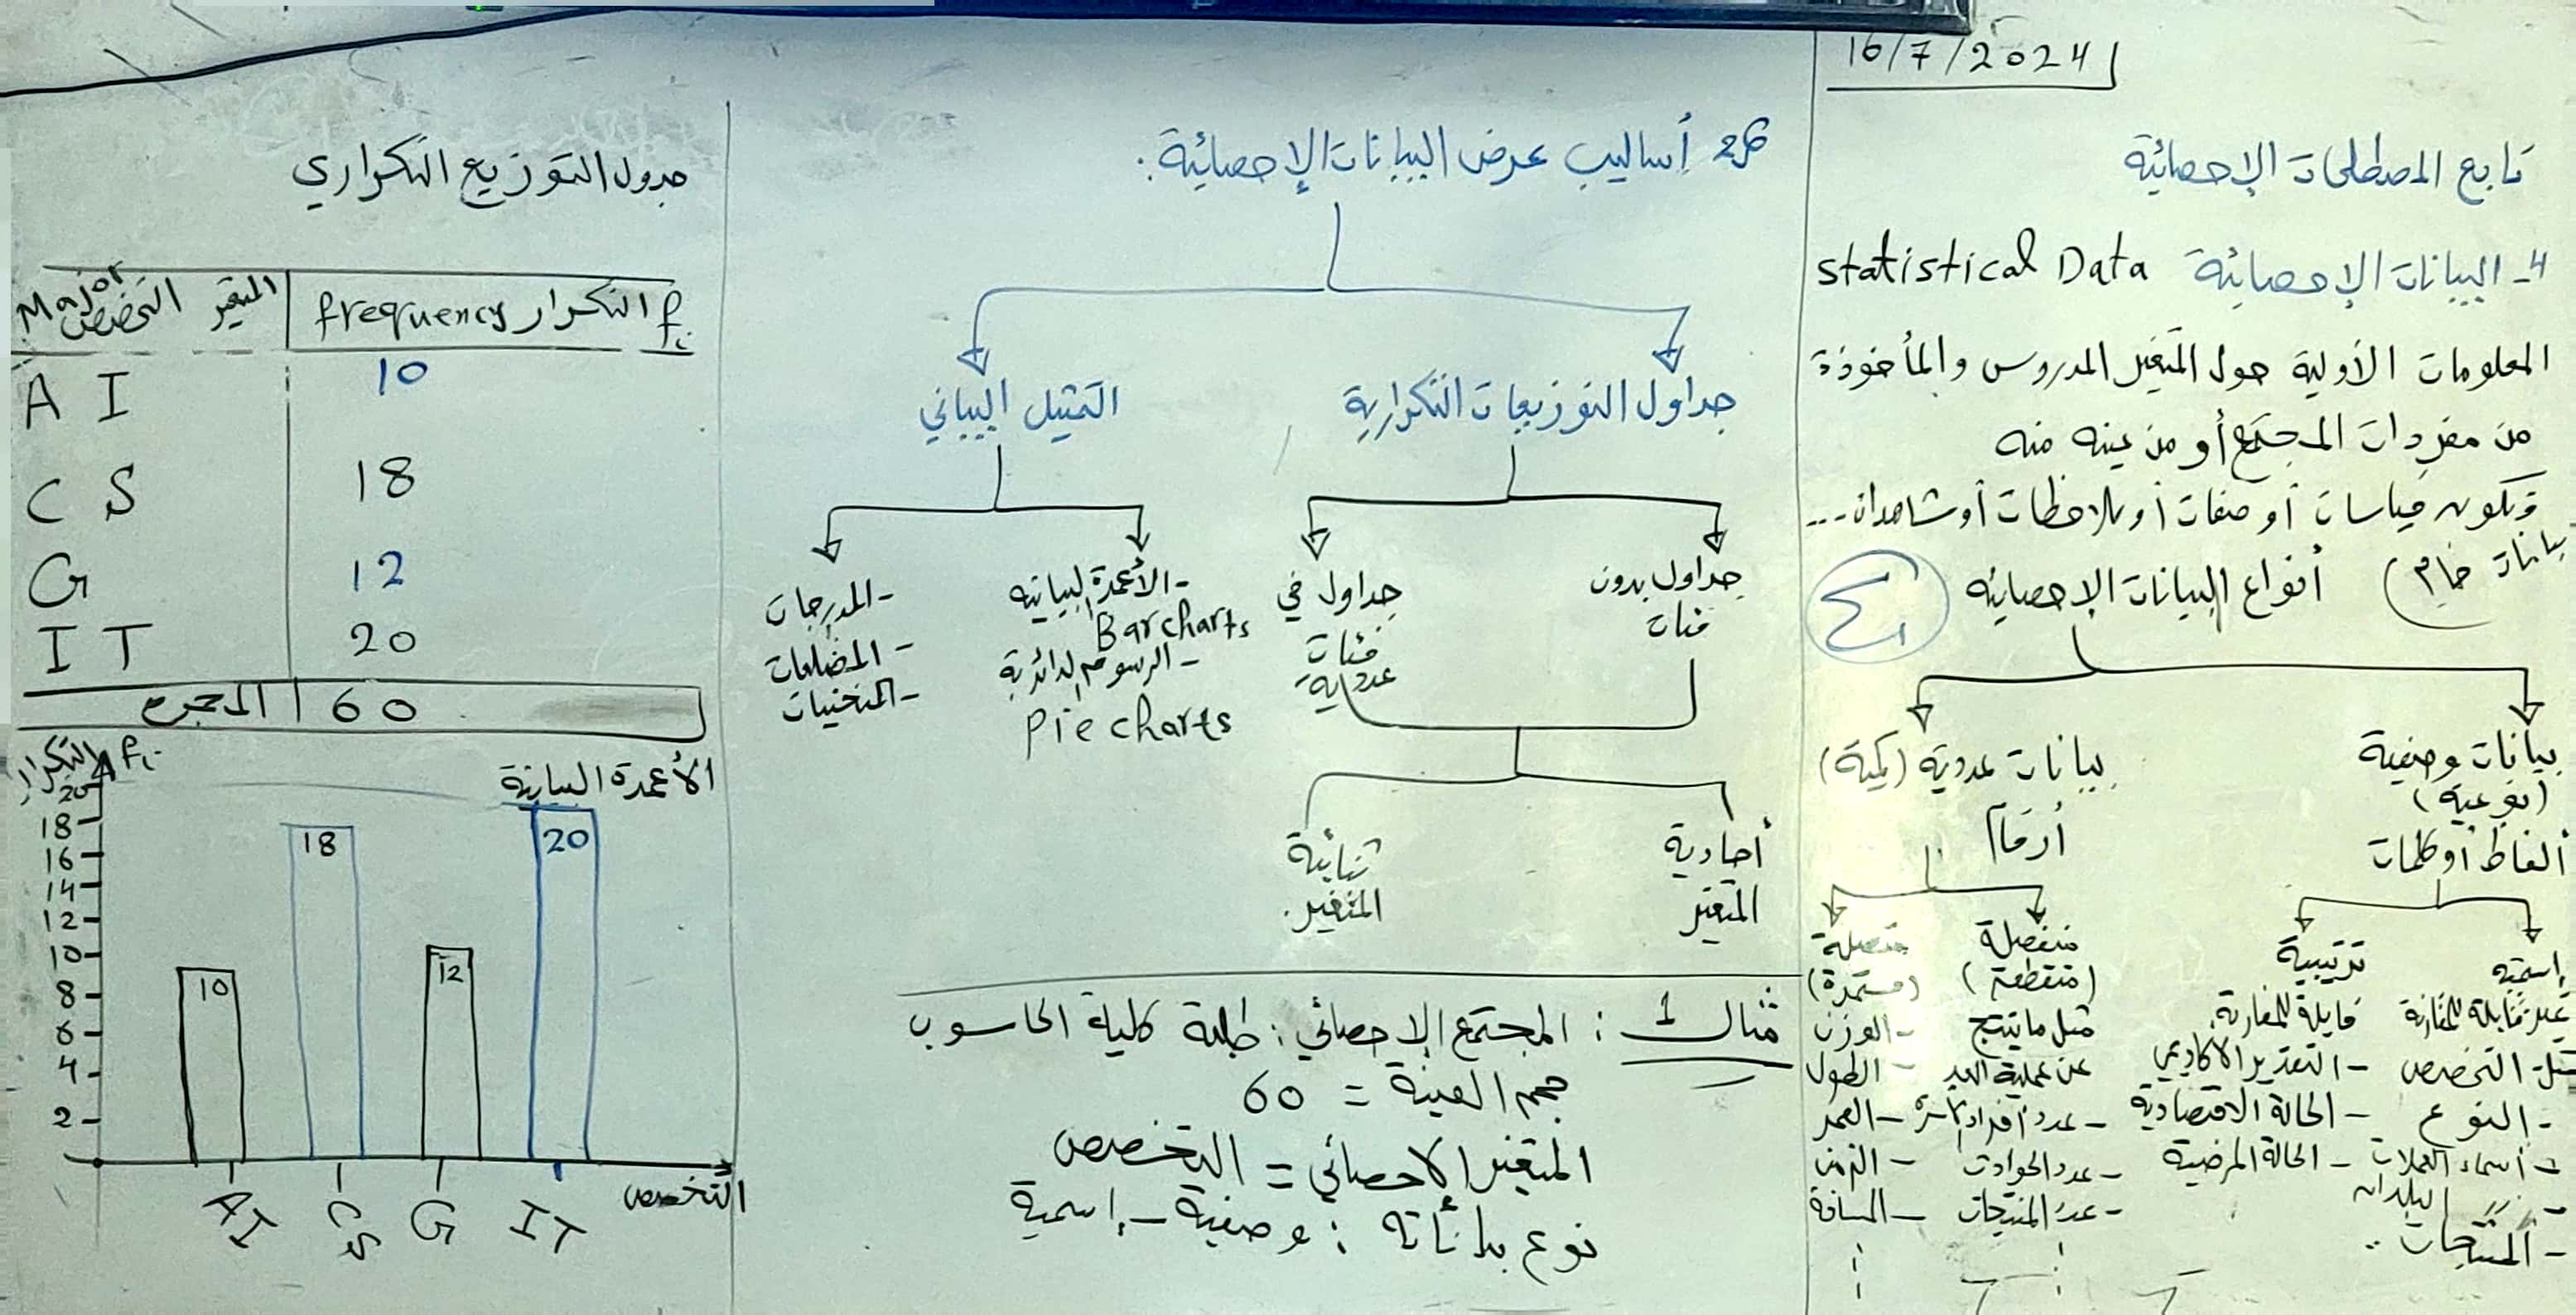 16/7/2024
تابع المصطلحات الإحصائية
4- البيانات الإحصائية Statistical Data
المعلومات الأولية حول المتغير المدروس والمأخوذة
من مفردات المجتمع أو من عينه منه
وتكون قياسات أو صفات أو ملاحظات أو مشاهدات...
بيانات خام)
أنواع البيانات الإحصائيه
بيانات وصفية
(نوعية)
ألفاظ أو كلمات
إسمية
غير قابلة للمقارنة
مثل - التخصص
- النوع
- أسماء العملات
- البلدان
- المنتجات ..
ترتيبية
قابلة للمقارنة
- التقدير الاكاديمي
- الحالة الاقتصادية
- الحالة المرضية
بيانات عددية (كمية)
أرقام
منفصلة
(متقطعة)
مثل ما ينتج
عن عملية العد
- عدد أفراد الأسرة
- عدد الحوادث
- عدد المنتجات
متصلة
(مستمرة)
- الوزن
- الطول
- العمر
- الزمن
- المسافة
أساليب عرض البيانات الإحصائية:
جداول التوزيعات التكرارية
جداول بدون
فئات
جداول في
فئات
عددية
أحادية
المتغير
ثنائية
المتغير.
التمثيل البياني
- الأعمدة البيانيه
Bar charts
- الرسوم الدائرية
Pie charts
- المدرجات
- المضلعات
- المنحنيات
مثال 1 : المجتمع الإحصائي : طلبة كلية الحاسوب
حجم العينة = 60
المتغير الاحصائي = التخصص
نوع بياناته : وصفية - إسمية
جدول التوزيع التكراري
المتغير التخصص Major | frequency التكرار fi
AI 10
CS 18
G 12
IT 20
المجموع | 60
الأعمدة البيانية
التكرار fi
20
18
16
14
12
10
8
6
4
2
10 18 12 20
AI CS G IT التخصص